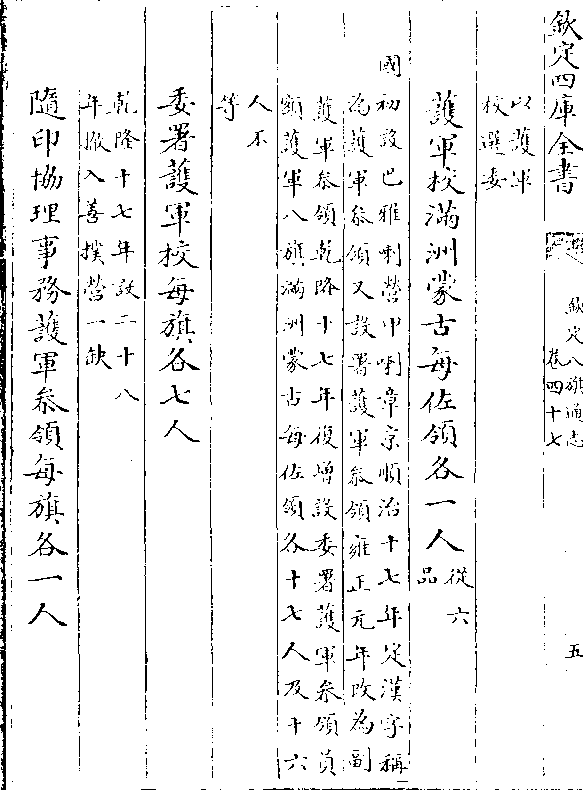 欽定四庫全書
欽定八旗通志
卷四十七
五
以護軍
校選委
護軍校滿洲蒙古每佐領各一人
從六
品
國初設巴雅喇營甲喇章京順治十七年定漢字稱
為護軍叅領又設署護軍叅領雍正元年改為副
護軍叅領乾隆十七年復增設委署護軍叅領員
額護軍八旗滿洲蒙古每佐領各十七人及十六
人不
等
委署護軍校每旗各七人
乾隆十七年設二十八
年撥入善撲營一缺
隨印協理事務護軍叅領每旗各一人